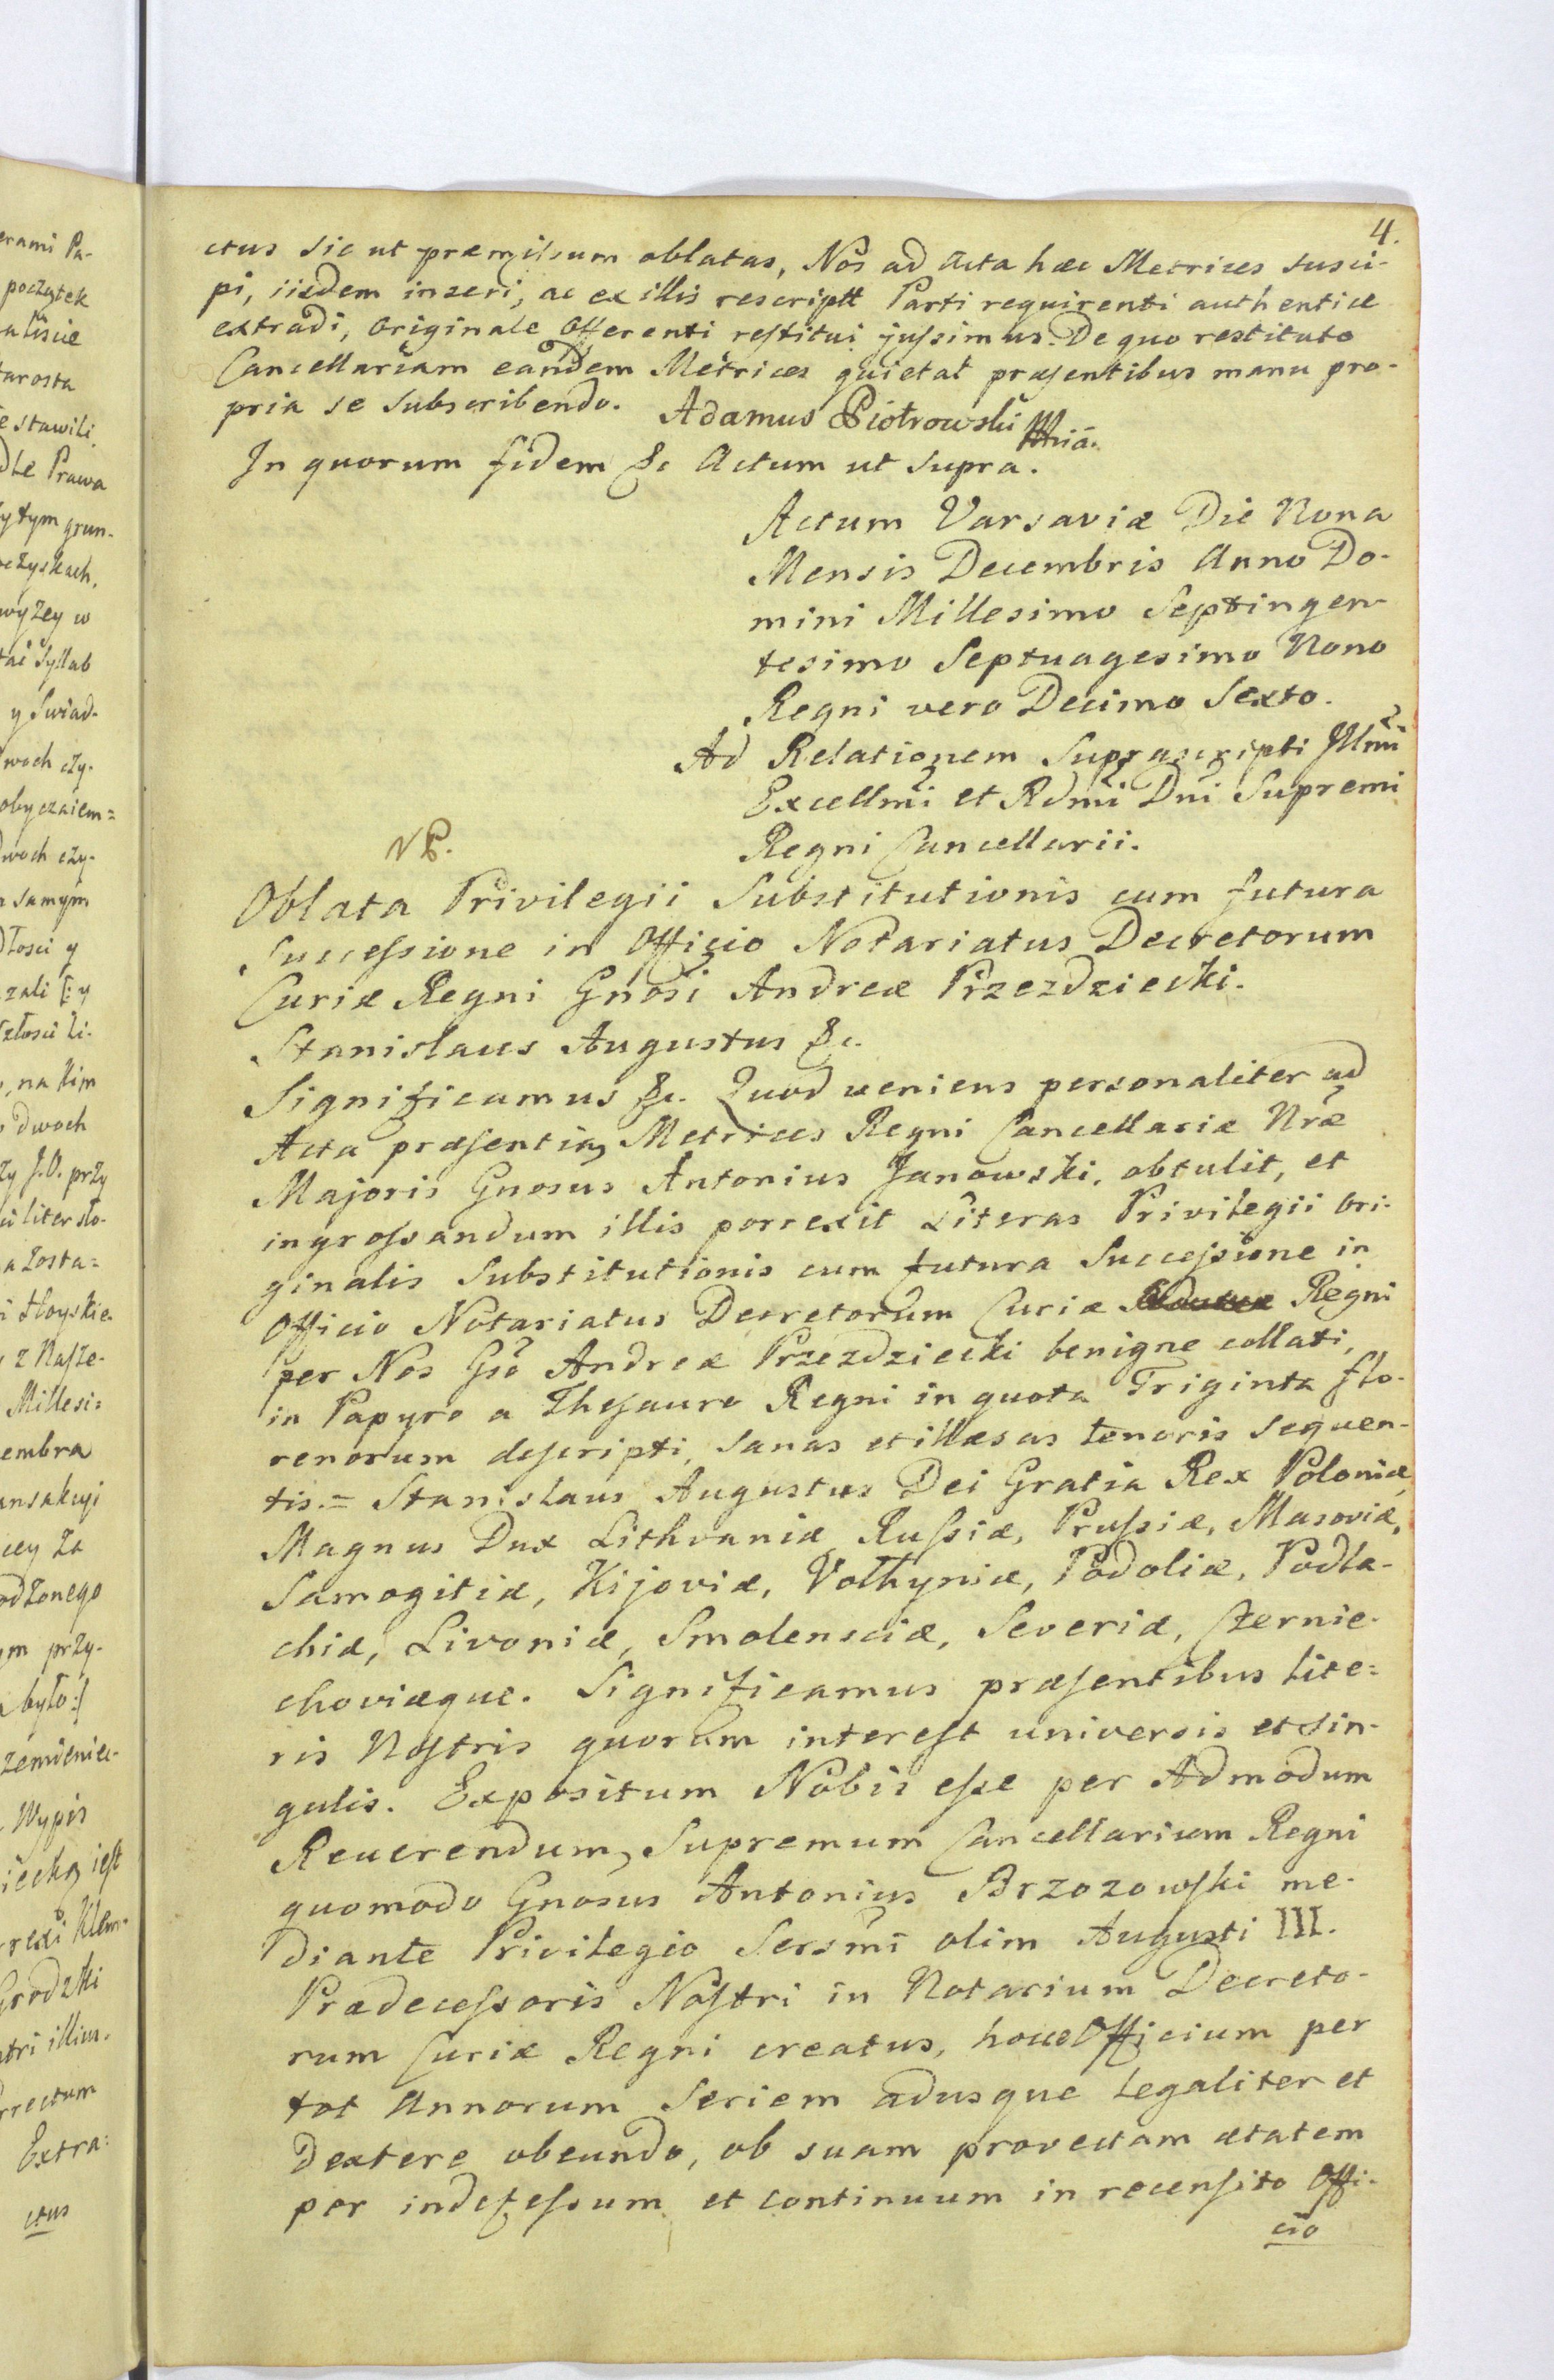 4.
ctus sic ut præmissum oblatas, Nos ad acta hæc Metrices susci-
pi, iisdem inseri, ac ex illis rescriptt Parti requirenti authentice
extradi, Originale Offerenti restitui jussimus. De quo restituto
Cancellariam eandem Metrices quietat præsentibus manu pro-
pria se subscribendo. Adamus Piotrowski
In quorum fidem &c Actum ut supra.
Actum Varsaviæ Die Nona
Mensis Decembris Anno Do-
mini Millesimo Septingen-
tesimo Septuagesimo Nono
Regni vero Decimo Sexto.
Ad Relationem Suprascripti Illmi
Excellmi et Rdmi Dni Supremi
Regni Cancellarii.
NP.
Oblata Privilegii Substitutionis cum futura
Successione in Officio Notariatus Decretorum
Curiæ Regni Gnosi Andreæ Przezdziecki.
Stanislaus Augustus &c.
Significamus &c. Quod veniens personaliter ad
Acta præsentia Metrices Regni Cancellariæ Nræ
Majoris Gnosus Antonius Janowski, obtulit, et
ingrossandum illis porrexit Literas Privilegii ori-
ginalis Substitutionis cum futura Successione in
Officio Notariatus Decretorum Curiæ Regni
per Nos Gso Andreæ Przezdziecki benigne collati,
in Papyro a Thesauro Regni in quota Triginta flo-
renorum descripti, sanas et illæsas tenoris sequen-
tis.= Stanislaus Augustus Dei Gratia Rex Poloniæ,
Magnus Dux Lithvaniæ Russiæ, Prussiæ, Masoviæ,
Samogitiæ, Kijoviæ, Volhyniæ, Podoliæ, Podla-
chiæ, Livoniæ, Smolensciæ, Severiæ, Czernie-
choviæque. Significamus præsentibus lite=
ris Nostris quorum interest universis et sin-
gulis. Expositum Nobis esse per Admodum
Reverendum, Supremum Cancellarium Regni
quomodo Gnosus Antonius Brzozowski me-
diante Privilegio Sersmi olim Augusti III.
Prædecessoris Nostri in Notarium Decreto-
rum Curiæ Regni creatus, hocce Officium per
tot Annorum Seriem adusque legaliter et
dextere obeundo, ob suam provectam ætatem
per indefessum et continuum in recensito Offi-
cio
erami Pa-
początek
tarosta
dle Prawa
wyzey w
y Swiad-
obyczaiem=
samym
na kim
dwoch
Millesi=
embra
przy-
było:/
Wypis
iest
Grodzki
rrectum
Extra=
ctus